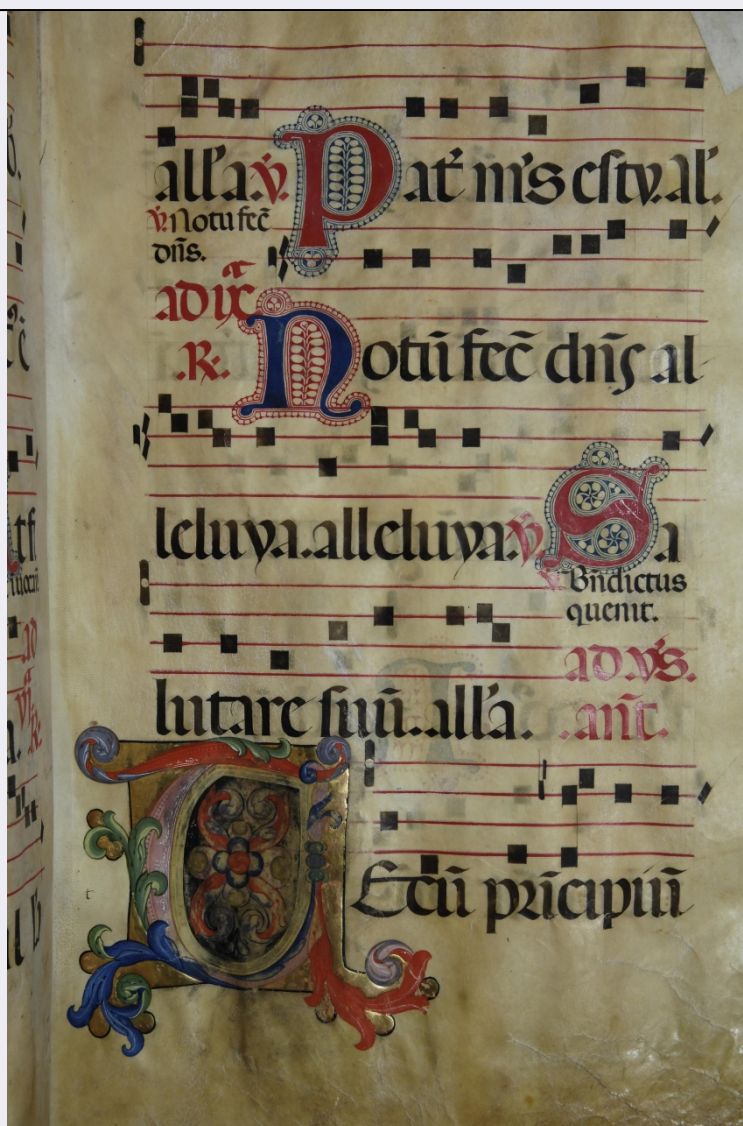 all'a. V̄. Pat̄ m's es tu. al'.
V̄. Notū fec̄
dn̄s.
ad ix
.R. Notū fec̄ dn̄s al
leluya. alleluya. V̄. Sa
Bn̄dictus
quenit.
lutare suū. all'a.
ad v̄s.
.an̄t.
TEcū prīcipiū